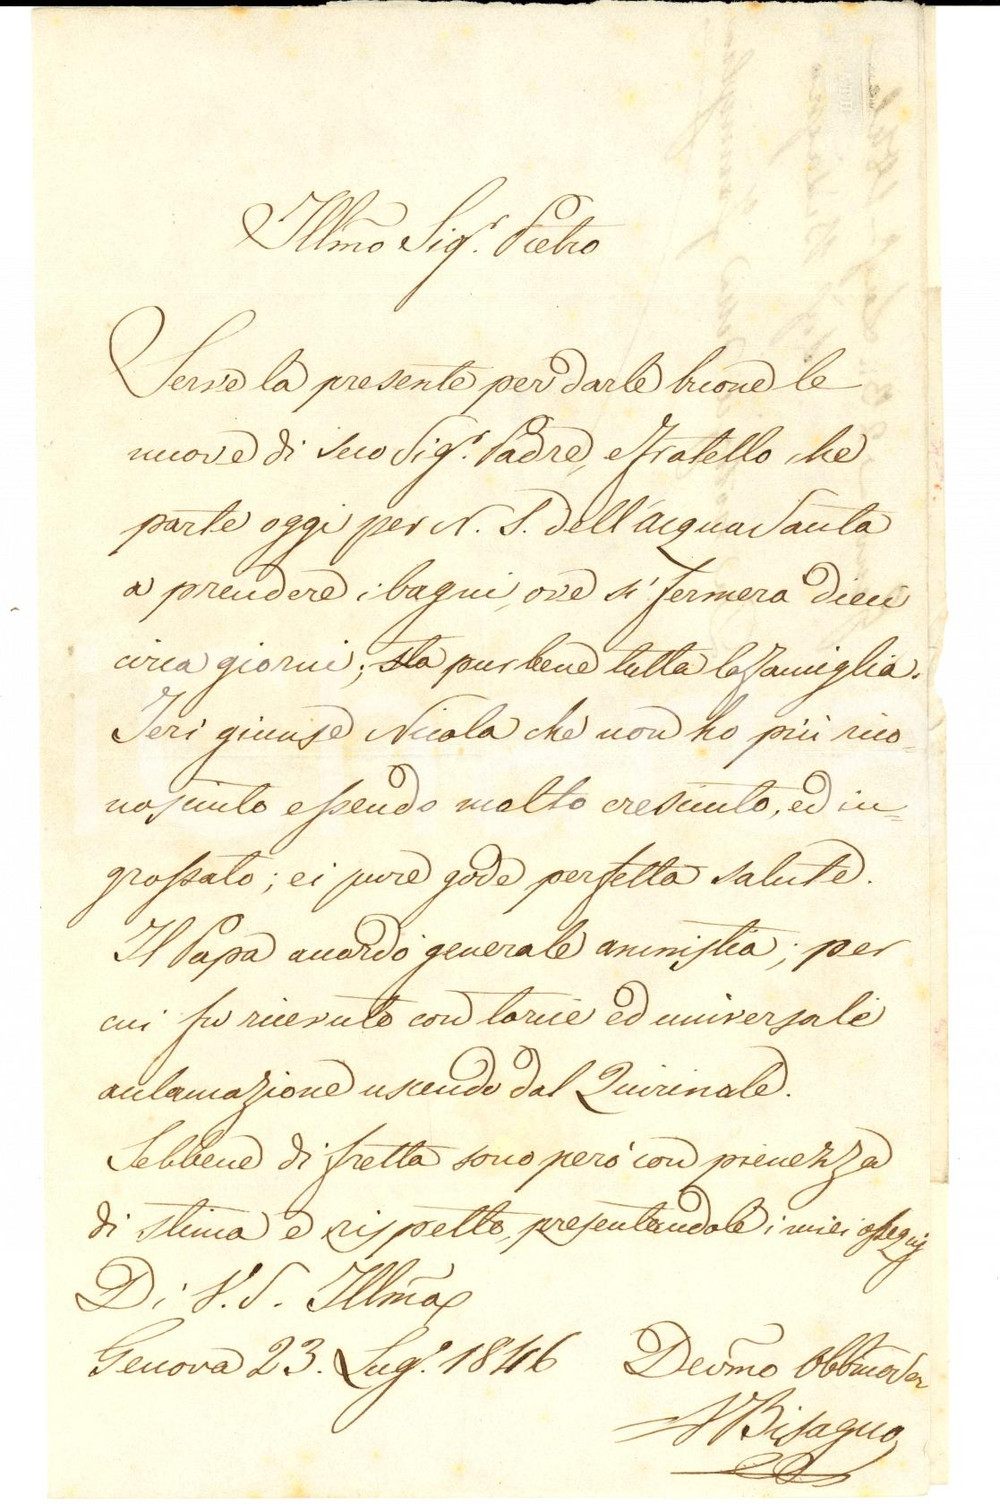 Illmo Sigr. Pietro
Serve la presente per darle buone le
nuove di suo Sigr. Padre, e fratello che
parte oggi per N. S. dell'Acqua Santa
a prendere i bagni, ove si fermera dieci
circa giorni; sta pur bene tutta la famiglia.
Jeri giunse Nicola che non ho più rico-
nosciuto essendo molto cresciuto, ed in=
grossato; ei pure gode perfetta salute.
Il Papa accordò generale amnistia; per
cui fu ricevuto con torcie ed universale
acclamazione uscendo dal Quirinale.
Sebbene di fretta sono però con pienezza
di stima e rispetto, presentandole i miei ossequj
Di V. S. Illma
Genova 23. Lugo. 1846
Devmo Obbmo Ser
Bisagno